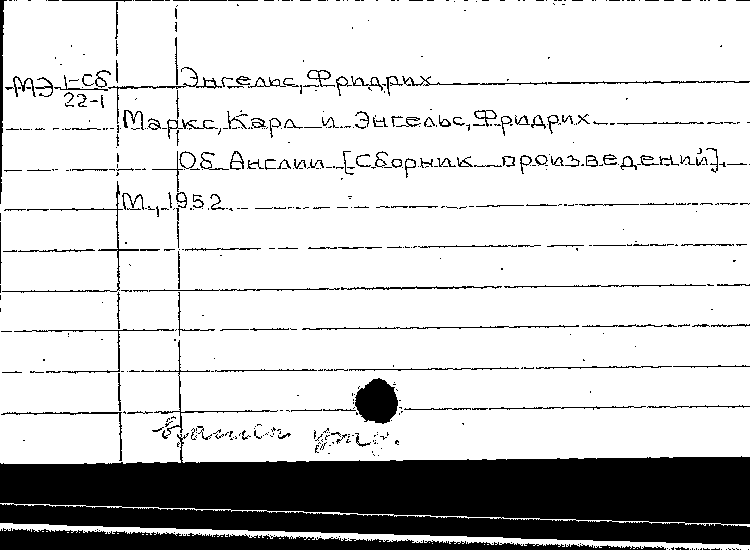 МЭ 1-сб Энгельс, Фридрих
22-1
Маркс, Карл и Энгельс, Фридрих
Об Англии [Сборник произведений].
М., 1952.